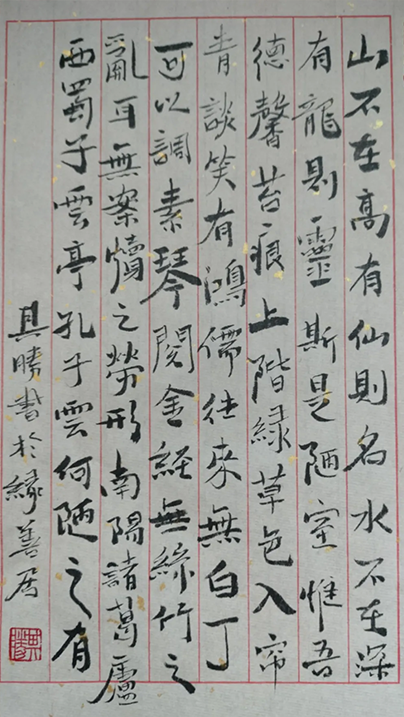 山不在高有仙則名水不在深
有龍則靈斯是陋室惟吾
德馨苔痕上階緑草色入帘
青談笑有鴻儒往來無白丁
可以調素琴閱金經無絲竹之
亂耳無案牘之勞形南陽諸葛廬
西蜀子雲亭孔子雲何陋之有
書於緣善居